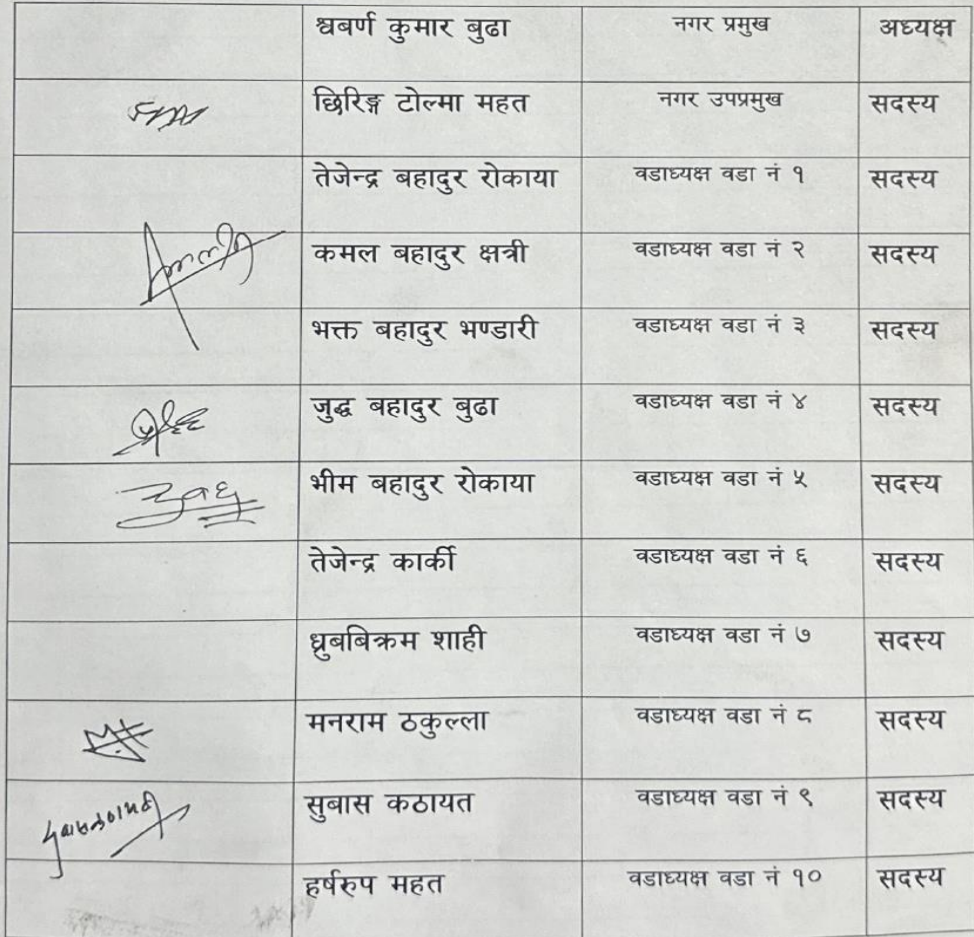 श्रबर्ण कुमार बुढा नगर प्रमुख अध्यक्ष
छिरिङ्ग टोल्मा महत नगर उपप्रमुख सदस्य
तेजेन्द्र बहादुर रोकाया वडाध्यक्ष वडा नं १ सदस्य
कमल बहादुर क्षत्री वडाध्यक्ष वडा नं २ सदस्य
भक्त बहादुर भण्डारी वडाध्यक्ष वडा नं ३ सदस्य
जुद्ध बहादुर बुढा वडाध्यक्ष वडा नं ४ सदस्य
भीम बहादुर रोकाया वडाध्यक्ष वडा नं ५ सदस्य
तेजेन्द्र कार्की वडाध्यक्ष वडा नं ६ सदस्य
ध्रुबबिक्रम शाही वडाध्यक्ष वडा नं ७ सदस्य
मनराम ठकुल्ला वडाध्यक्ष वडा नं ८ सदस्य
सुबास कठायत वडाध्यक्ष वडा नं ९ सदस्य
हर्षरुप महत वडाध्यक्ष वडा नं १० सदस्य